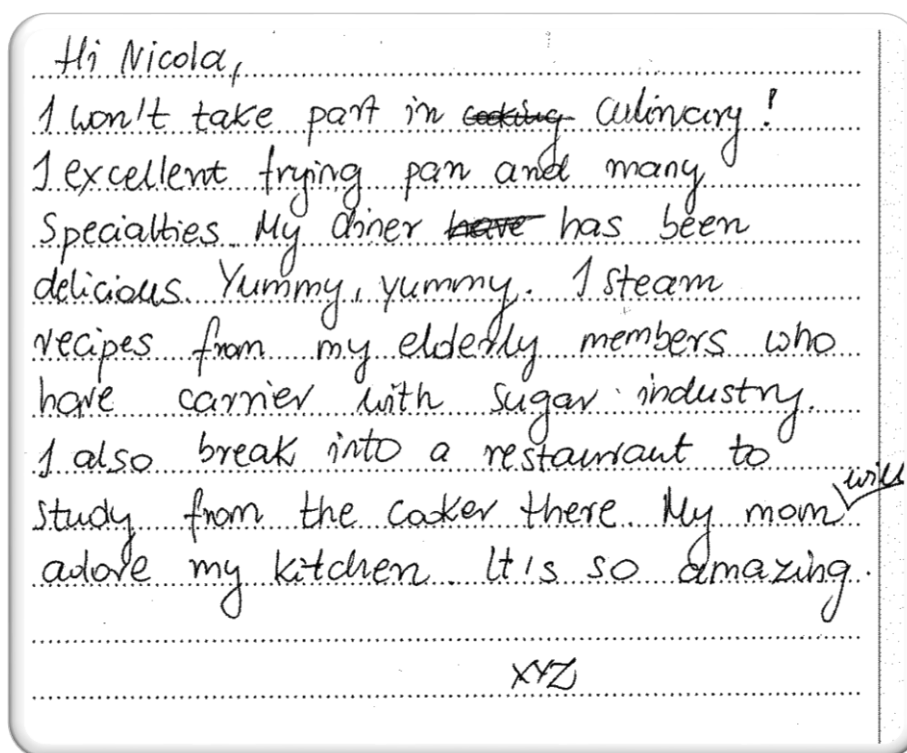 Hi Nicola,
I won't take part in cooking culinary!
I excellent frying pan and many
specialties. My diner have has been
delicious. Yummy, yummy. I steam
recipes from my elderly members who
have carrier with sugar industry.
I also break into a restaurant to
will
study from the cooker there. My mom
adore my kitchen. It's so amazing.
XYZ